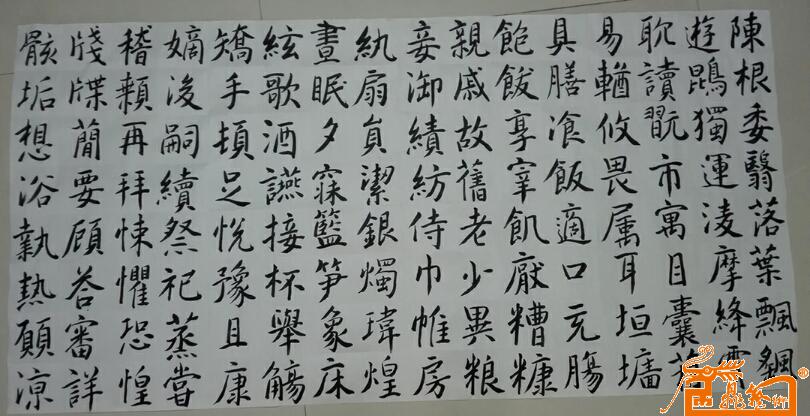 陳根委翳落葉飄颻
遊鵾獨運凌摩絳
耽讀翫市寓目囊
易輶攸畏属耳垣墻
具膳飡飯適口充腸
飽飫享宰飢厭糟糠
親戚故舊老少異粮
妾御績紡侍巾帷房
紈扇員潔銀燭瑋煌
晝眠夕寐籃笋象床
絃歌酒讌接杯舉觴
矯手頓足悅豫且康
嫡後嗣續祭祀蒸嘗
稽顙再拜悚懼恐惶
牋牒簡要顧答審詳
骸垢想浴執熱願凉